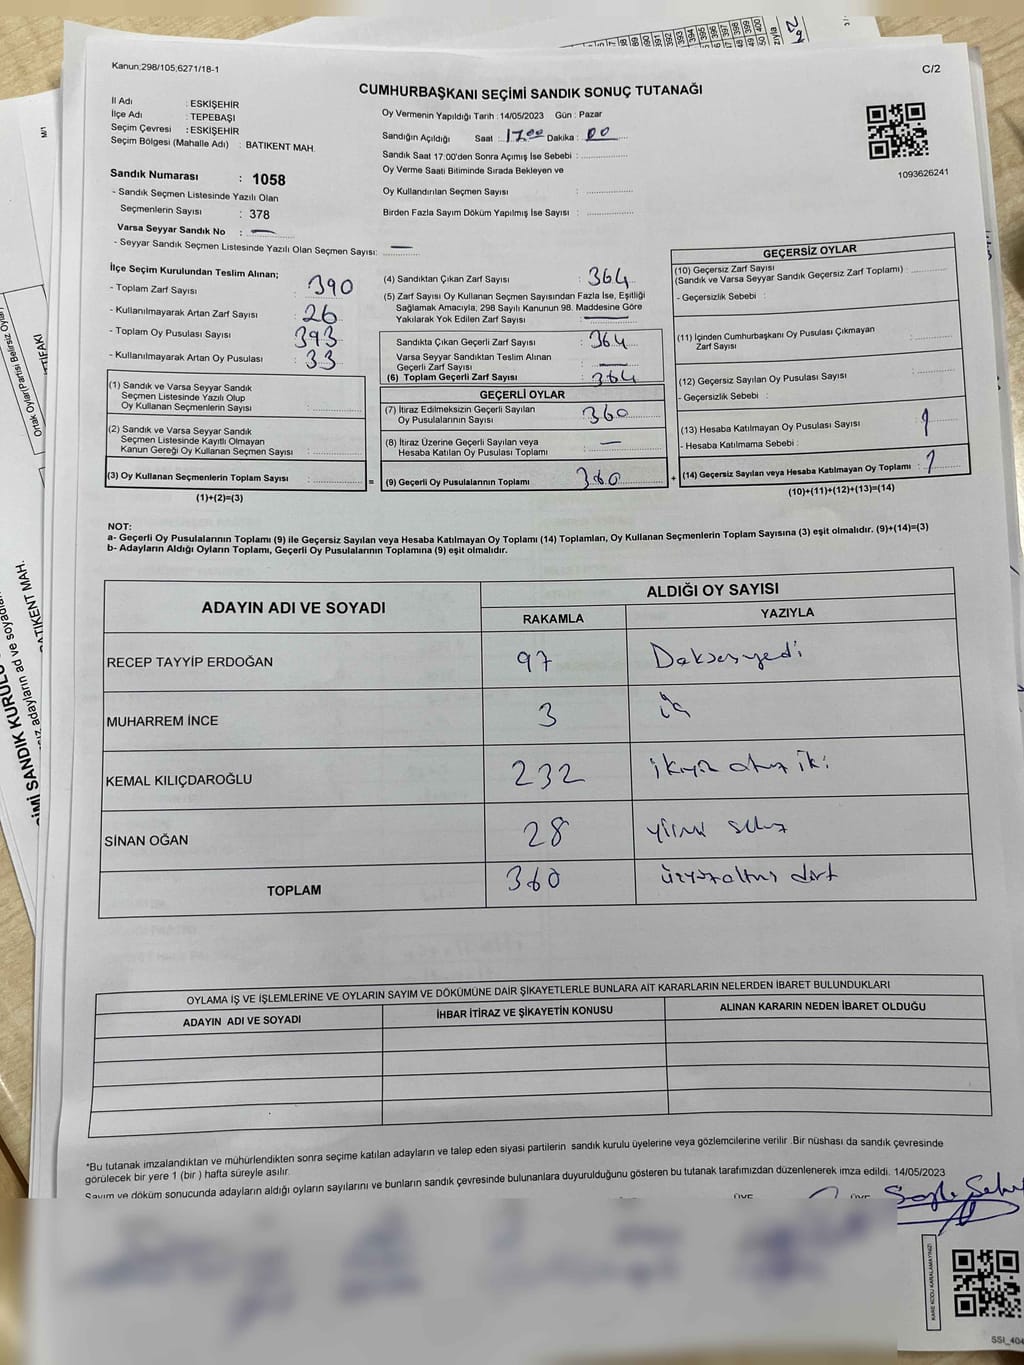 Kanun;298/105;6271/18-1
C/2
CUMHURBAŞKANI SEÇİMİ SANDIK SONUÇ TUTANAĞI
İl Adı : ESKİŞEHİR
İlçe Adı : TEPEBAŞI
Seçim Çevresi : ESKİŞEHİR
Seçim Bölgesi (Mahalle Adı) : BATIKENT MAH.
Oy Vermenin Yapıldığı Tarih : 14/05/2023 Gün : Pazar
Sandığın Açıldığı Saat : 17.00 Dakika : 00
Sandık Saat 17:00'den Sonra Açımış İse Sebebi :
Oy Verme Saati Bitiminde Sırada Bekleyen ve
Oy Kullandırılan Seçmen Sayısı :
Birden Fazla Sayım Döküm Yapılmış İse Sayısı :
1093626241
Sandık Numarası : 1058
- Sandık Seçmen Listesinde Yazılı Olan
Seçmenlerin Sayısı : 378
Varsa Seyyar Sandık No : —
- Seyyar Sandık Seçmen Listesinde Yazılı Olan Seçmen Sayısı: —
İlçe Seçim Kurulundan Teslim Alınan;
- Toplam Zarf Sayısı : 390
- Kullanılmayarak Artan Zarf Sayısı : 26
- Toplam Oy Pusulası Sayısı : 393
- Kullanılmayarak Artan Oy Pusulası : 33
(1) Sandık ve Varsa Seyyar Sandık
Seçmen Listesinde Yazılı Olup
Oy Kullanan Seçmenlerin Sayısı :
(2) Sandık ve Varsa Seyyar Sandık
Seçmen Listesinde Kayıtlı Olmayan
Kanun Gereği Oy Kullanan Seçmen Sayısı :
(3) Oy Kullanan Seçmenlerin Toplam Sayısı :
(1)+(2)=(3)
(4) Sandıktan Çıkan Zarf Sayısı : 364
(5) Zarf Sayısı Oy Kullanan Seçmen Sayısından Fazla İse, Eşitliği
Sağlamak Amacıyla, 298 Sayılı Kanunun 98. Maddesine Göre
Yakılarak Yok Edilen Zarf Sayısı : —
Sandıkta Çıkan Geçerli Zarf Sayısı : 364
Varsa Seyyar Sandıktan Teslim Alınan
Geçerli Zarf Sayısı : —
(6) Toplam Geçerli Zarf Sayısı : 364
GEÇERLİ OYLAR
(7) İtiraz Edilmeksizin Geçerli Sayılan
Oy Pusulalarının Sayısı : 360
(8) İtiraz Üzerine Geçerli Sayılan veya
Hesaba Katılan Oy Pusulası Toplamı : —
= (9) Geçerli Oy Pusulalarının Toplamı : 360
GEÇERSİZ OYLAR
(10) Geçersiz Zarf Sayısı
(Sandık ve Varsa Seyyar Sandık Geçersiz Zarf Toplamı) :
- Geçersizlik Sebebi :
(11) İçinden Cumhurbaşkanı Oy Pusulası Çıkmayan
Zarf Sayısı :
(12) Geçersiz Sayılan Oy Pusulası Sayısı :
- Geçersizlik Sebebi :
(13) Hesaba Katılmayan Oy Pusulası Sayısı : 1
- Hesaba Katılmama Sebebi :
+ (14) Geçersiz Sayılan veya Hesaba Katılmayan Oy Toplamı : 1
(10)+(11)+(12)+(13)=(14)
NOT:
a- Geçerli Oy Pusulalarının Toplamı (9) ile Geçersiz Sayılan veya Hesaba Katılmayan Oy Toplamı (14) Toplamları, Oy Kullanan Seçmenlerin Toplam Sayısına (3) eşit olmalıdır. (9)+(14)=(3)
b- Adayların Aldığı Oyların Toplamı, Geçerli Oy Pusulalarının Toplamına (9) eşit olmalıdır.
ADAYIN ADI VE SOYADI
ALDIĞI OY SAYISI
RAKAMLA YAZIYLA
RECEP TAYYİP ERDOĞAN 97 Doksanyedi
MUHARREM İNCE 3 üç
KEMAL KILIÇDAROĞLU 232 ikiyüz otuz iki
SİNAN OĞAN 28 yirmi sekiz
TOPLAM 360 üçyüzaltmış dört
OYLAMA İŞ VE İŞLEMLERİNE VE OYLARIN SAYIM VE DÖKÜMÜNE DAİR ŞİKAYETLERLE BUNLARA AİT KARARLARIN NELERDEN İBARET BULUNDUKLARI
ADAYIN ADI VE SOYADI İHBAR İTİRAZ VE ŞİKAYETİN KONUSU ALINAN KARARIN NEDEN İBARET OLDUĞU
*Bu tutanak imzalandıktan ve mühürlendikten sonra seçime katılan adayların ve talep eden siyasi partilerin sandık kurulu üyelerine veya gözlemcilerine verilir .Bir nüshası da sandık çevresinde
görülecek bir yere 1 (bir ) hafta süreyle asılır.
Sayım ve döküm sonucunda adayların aldığı oyların sayılarını ve bunların sandık çevresinde bulunanlara duyurulduğunu gösteren bu tutanak tarafımızdan düzenlenerek imza edildi. 14/05/2023
KARE KODU KARALAMAYINIZ!
SSI_404